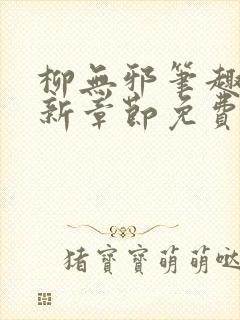 柳無邪筆趣
新章節免費
猪寶寶萌萌噠